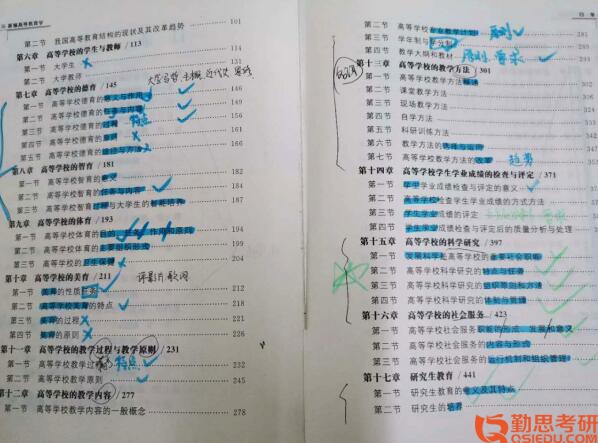 新编高等教育学
第二节 我国高等教育结构的现状及其改革趋势 101
第六章 高等学校的学生与教师 / 113
第一节 大学生 114
第二节 大学教师
第七章 高等学校的德育 / 145
第一节 高等学校德育的意义与作用 146
第二节 高等学校德育的任务与内容 149
第三节 高等学校德育的过程 特点 156
第四节 高等学校德育的原则 161
第五节 高等学校德育的途径与方法 166
第八章 高等学校的智育 / 181
第一节 高等学校智育的意义 182
第二节 高等学校智育的任务与内容 184
第三节 高等学校智育过程与大学生的智能培养 187
第九章 高等学校的体育 / 193
第一节 高等学校体育的目的、任务、作用和原则 194
第二节 高等学校体育的主要组织形式 199
第三节 高等学校的卫生保健 204
第十章 高等学校的美育 / 211
第一节 美育的性质 212
第二节 高等学校美育的特点 218
第三节 美育的过程 221
第四节 美育的原则 226
第十一章 高等学校的教学过程与教学原则 / 231
第一节 高等学校教学过程 特点 232
第二节 高等学校教学原则 245
第十二章 高等学校的教学内容 / 277
第一节 高等学校教学内容的一般概念 278
第二节 高等学校专业教学计划 原则 281
第三节 学年制与学分制
第四节 教学大纲和教材 原则 要求 291
第十三章 高等学校的教学方法 / 301
第一节 高等学校教学方法概述
第二节 课堂教学方法
第三节 现场教学方法
第四节 自学方法
第五节 科研训练方法
第六节 教学方法的选择与运用
第七节 高等学校教学方法的改革 趋势
第十四章 高等学校学生学业成绩的检查与评定 / 371
第一节 学生学业成绩检查与评定的意义
第二节 高等学校检查学生学业成绩的方式方法
第三节 学生学业成绩的评定
第四节 学生学业成绩检查与评定后的质量分析与处理
第十五章 高等学校的科学研究 / 397
第一节 发展科学是高等学校的重要社会职能
第二节 高等学校科学研究的特点与任务
第三节 高等学校科学研究的组织原则和方法
第四节 高等学校科学研究的体制与管理
第十六章 高等学校的社会服务 / 423
第一节 高等学校社会服务职能的形成、发展和意义
第二节 高等学校社会服务的内容与形式
第三节 高等学校社会服务的运行机制和组织管理
第十七章 研究生教育 / 441
第一节 研究生教育的意义及其特点
第二节 研究生的培养
勤思考研
QSIEDU.COM